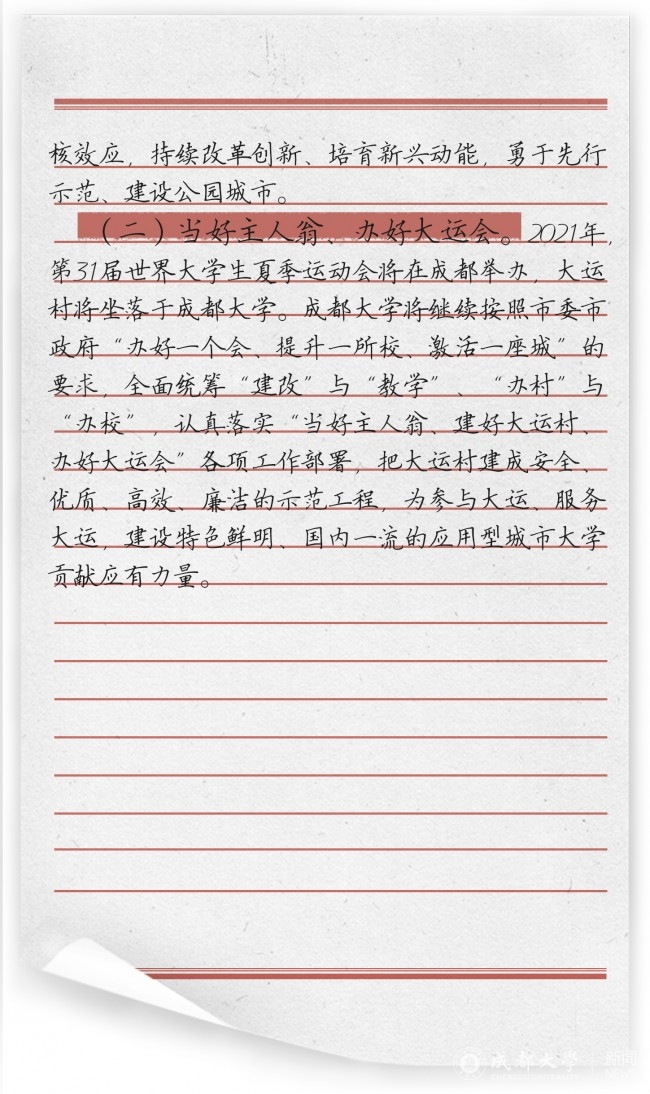 核效应，持续改革创新、培育新兴动能，勇于先行
示范、建设公园城市。
（二）当好主人翁、办好大运会。2021年，
第31届世界大学生夏季运动会将在成都举办，大运
村将坐落于成都大学。成都大学将继续按照市委市
政府“办好一个会、提升一所校、激活一座城”的
要求，全面统筹“建改”与“教学”、“办村”与
“办校”，认真落实“当好主人翁、建好大运村、
办好大运会”各项工作部署，把大运村建成安全、
优质、高效、廉洁的示范工程，为参与大运、服务
大运，建设特色鲜明、国内一流的应用型城市大学
贡献应有力量。
成都大学 新闻